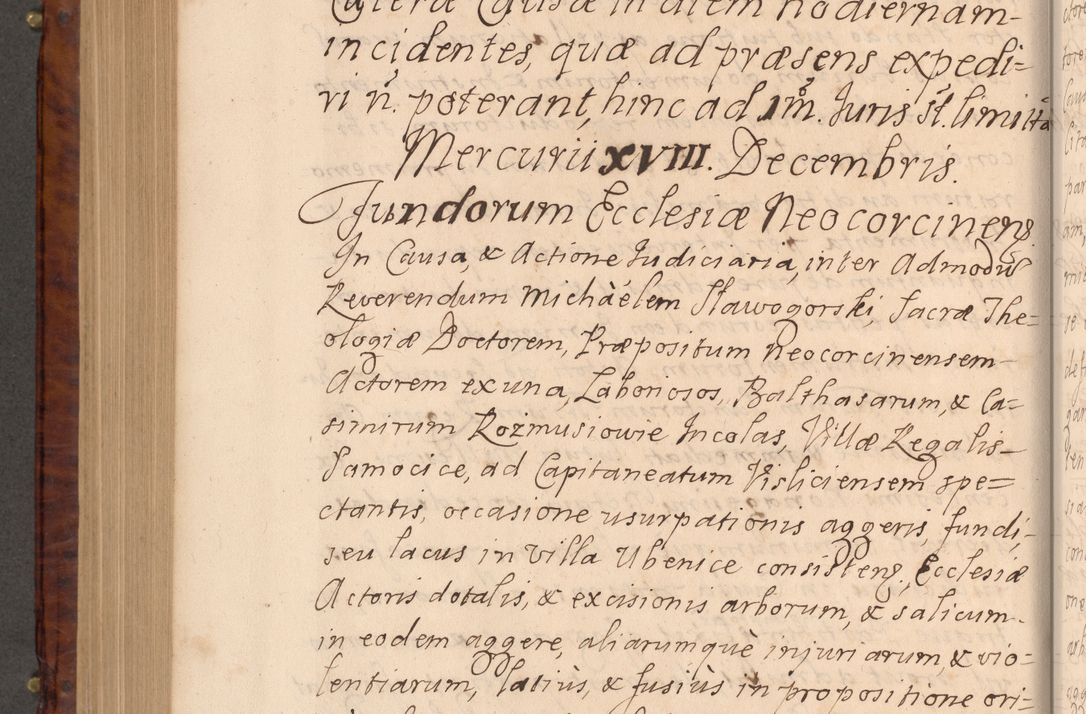 Cætera Causæ in diem hodiernam
incidentes, quæ ad præsens expedi=
ri n. poterant, hinc ad 1m. Juris st. limitta
Mercurii XVIII. Decembris.
Fundorum Ecclesiæ Neocorcinens.
In Causa, & Actione Judiciaria, inter Admodū
Reverendum Michaélem Sławogorski, Sacræ The=
ologiæ Doctorem, Præpositum Neocorcinensem
Actorem ex una, Laboriosos, Balthasarum, & Ca=
simirum Rozmusiowie Incolas, Villæ Regalis
Pamocice, ad Capitaneatum Visliciensem spe=
ctantis, occasione usurpationis aggeris, fundi,
seu lacus in Villa Ubenice consistens, Ecclesiæ
Actoris dotalis, & excisionis arborum, & salicum
in eodem aggere, aliarumquè injuriarum, & vio=
lentiarum, latiùs, & fusiùs in propositione ori=